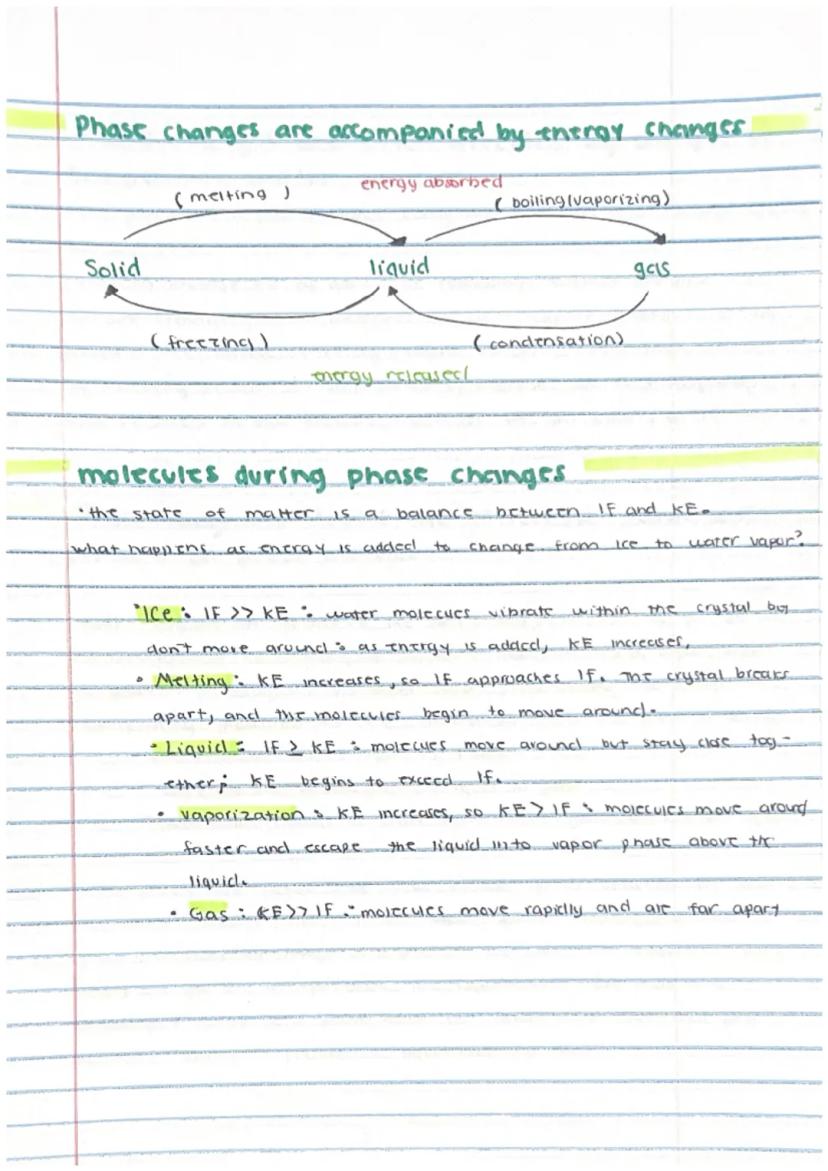 Phase changes are accompanied by energy changes
energy absorbed
(melting)
(boiling(vaporizing)
Solid
liquid
gas
(freezing)
(condensation)
energy released
molecules during phase changes
• the state of matter is a balance between IF and KE.
what happens as energy is added to change from ice to water vapor?
• Ice: IF >> KE: water molecues vibrate within the crystal but
don't move around: as energy is added, KE increases,
• Melting: KE increases, so IF approaches IF. The crystal breaks
apart, and the molecules begin to move around.
• Liquid: IF ≥ KE: molecues move around but stay close tog-
ether; KE begins to exceed IF.
• vaporization: KE increases, so KE > IF: molecules move around
faster and escape the liquid into vapor phase above the
liquid.
• Gas: KE >> IF: molecules move rapidly and are far apart